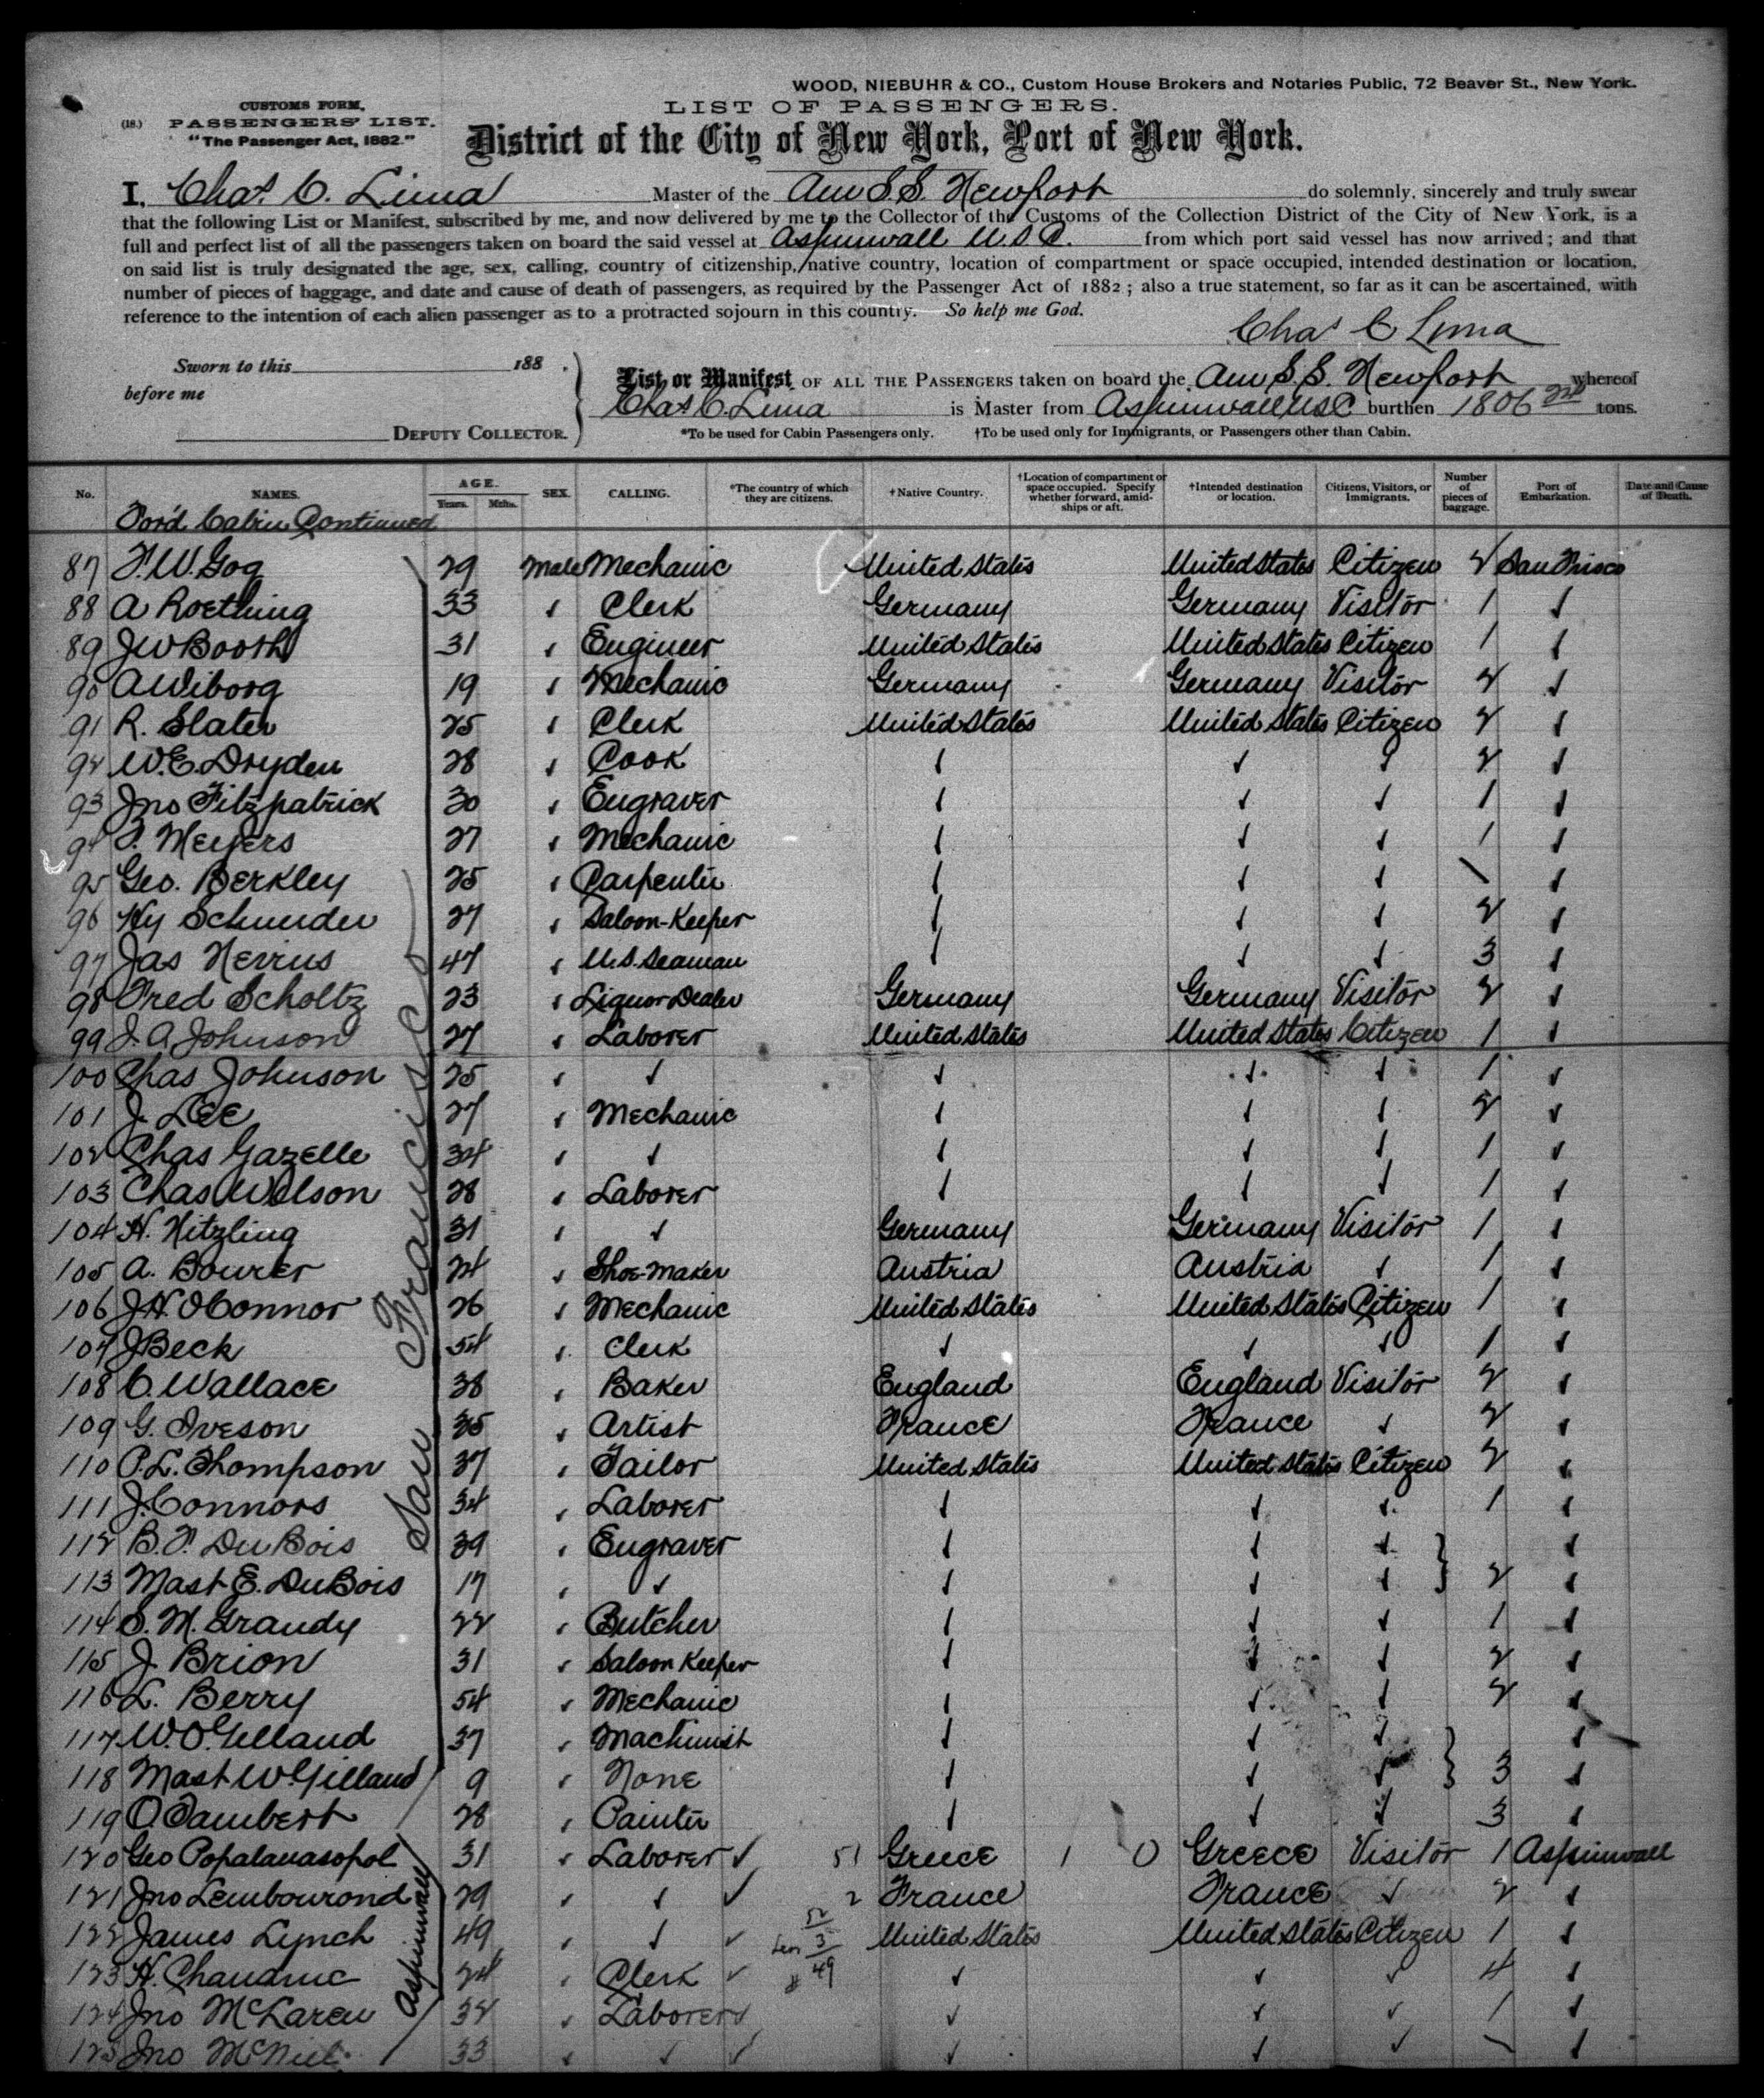 WOOD, NIEBUHR & CO., Custom House Brokers and Notaries Public, 72 Beaver St., New York.
LIST OF PASSENGERS.
CUSTOMS FORM,
(18.) PASSENGERS' LIST.
"The Passenger Act, 1882."
District of the City of New York, Port of New York.
I, Chas. C. Lima Master of the Am S.S. Newport do solemnly, sincerely and truly swear
that the following List or Manifest, subscribed by me, and now delivered by me to the Collector of the Customs of the Collection District of the City of New York, is a
full and perfect list of all the passengers taken on board the said vessel at Aspinwall U.S.C. from which port said vessel has now arrived; and that
on said list is truly designated the age, sex, calling, country of citizenship, native country, location of compartment or space occupied, intended destination or location,
number of pieces of baggage, and date and cause of death of passengers, as required by the Passenger Act of 1882; also a true statement, so far as it can be ascertained, with
reference to the intention of each alien passenger as to a protracted sojourn in this country. So help me God.
Chas C Lima
Sworn to this 188 .
before me
DEPUTY COLLECTOR.
List or Manifest OF ALL THE PASSENGERS taken on board the Am S.S. Newport whereof
Chas C. Lima is Master from Aspinwall USC burthen 1806 tons.
*To be used for Cabin Passengers only. †To be used only for Immigrants, or Passengers other than Cabin.
No. NAMES. AGE. Years. Mths. SEX. CALLING. *The country of which they are citizens. †Native Country. †Location of compartment or space occupied. Specify whether forward, amidships or aft. †Intended destination or location. Citizens, Visitors, or Immigrants. Number of pieces of baggage. Port of Embarkation. Date and Cause of Death.
For'd Cabin Continued
87 F.W. Gog 29 Male Mechanic United States United States Citizen 2 San Frisco
88 A Roething 33 ✓ Clerk Germany Germany Visitor 1 ✓
89 JW Booth 31 ✓ Engineer United States United States Citizen 1 ✓
90 A Wiborg 19 ✓ Mechanic Germany Germany Visitor 2 ✓
91 R. Slater 25 ✓ Clerk United States United States Citizen 2 ✓
92 W.E. Dryden 28 ✓ Cook ✓ ✓ ✓ 2 ✓
93 Jno Fitzpatrick 30 ✓ Engraver ✓ ✓ ✓ 1 ✓
94 Meyers 27 ✓ Mechanic ✓ ✓ ✓ 1 ✓
95 Geo. Berkley 25 ✓ Carpenter ✓ ✓ ✓ \ ✓
96 Hy Schneider 27 ✓ Saloon-Keeper ✓ ✓ ✓ 2 ✓
97 Jas Nevins 47 ✓ U.S. Seaman ✓ ✓ ✓ 3 ✓
98 Fred Scholtz 23 ✓ Liquor Dealer Germany Germany Visitor 2 ✓
99 J. A Johnson 27 ✓ Laborer United States United States Citizen 1 ✓
100 Chas Johnson 25 ✓ ✓ ✓ ✓ ✓ 1 ✓
101 J. Lee 27 ✓ Mechanic ✓ ✓ ✓ 2 ✓
102 Chas Gazelle 34 ✓ ✓ ✓ ✓ ✓ 1 ✓
103 Chas Wilson 28 ✓ Laborer ✓ ✓ ✓ 1 ✓
104 H. Hitzling 31 ✓ ✓ Germany Germany Visitor 1 ✓
105 A. Bowrer 24 ✓ Shoe-Maker Austria Austria ✓ 1 ✓
106 J.H. O'Connor 26 ✓ Mechanic United States United States Citizen 1 ✓
107 J Beck 54 ✓ Clerk ✓ ✓ ✓ 1 ✓
108 C. Wallace 38 ✓ Baker England England Visitor 2 ✓
109 G. Iveson 35 ✓ Artist France France ✓ 2 ✓
110 P.L. Thompson 37 ✓ Tailor United States United States Citizen 2 ✓
111 J. Connors 34 ✓ Laborer ✓ ✓ ✓ 1 ✓
112 B.F. DuBois 39 ✓ Engraver ✓ ✓ ✓ ✓
113 Mast E. DuBois 17 ✓ ✓ ✓ ✓ ✓ 2 ✓
114 S. M. Grandy 22 ✓ Butcher ✓ ✓ ✓ 1 ✓
115 J. Brion 31 ✓ Saloon Keeper ✓ ✓ ✓ 2 ✓
116 L. Berry 54 ✓ Mechanic ✓ ✓ ✓ 2 ✓
117 W.O. Gilland 37 ✓ Machinist ✓ ✓ ✓ ✓
118 Mast W. Gilland 9 ✓ None ✓ ✓ ✓ 3 ✓
119 O Lambert 28 ✓ Painter ✓ ✓ ✓ 3 ✓
San Francisco
120 Geo Popalanasopol 31 ✓ Laborer ✓ 51 Greece 1 0 Greece Visitor 1 Aspinwall
121 Jno Lembourond 29 ✓ ✓ ✓ 2 France France ✓ 2 ✓
122 James Lynch 49 ✓ ✓ ✓ 52 3 United States United States Citizen 1 ✓
123 H. Chandruc 24 ✓ Clerk ✓ # 49 ✓ ✓ ✓ 4 ✓
124 Jno McLaren 32 ✓ Laborer ✓ ✓ ✓ ✓ 1 ✓
125 Jno McNiel 33 ✓ ✓ ✓ ✓ ✓ ✓ \ ✓
Aspinwall